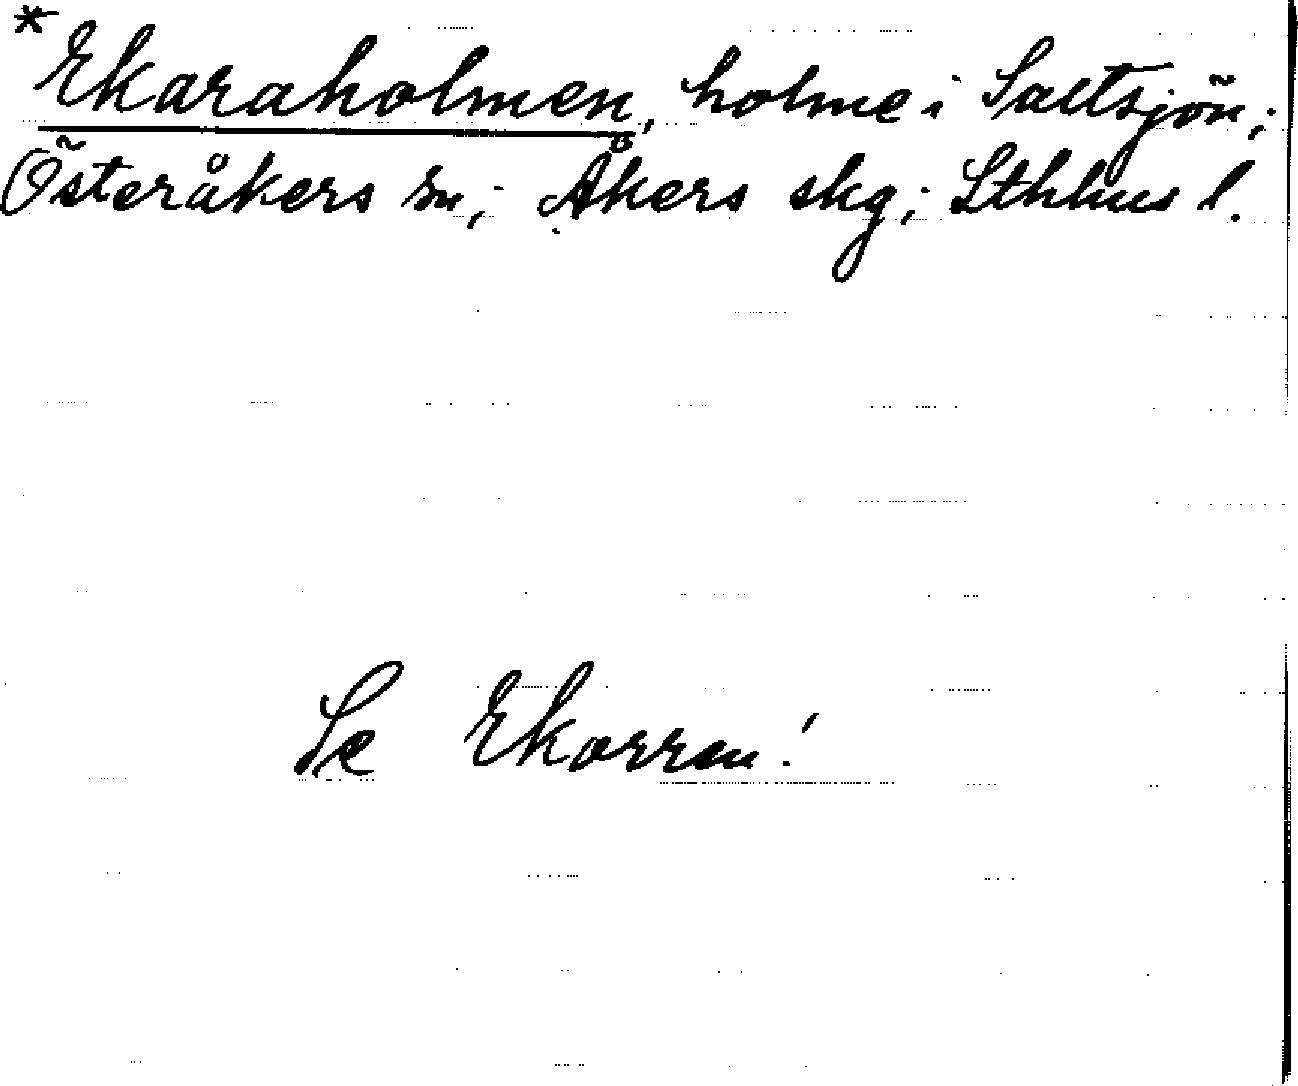 * Ekaraholmen, holme i Saltsjön;
Österåkers sn; Åkers skg; Sthlms l.
Se Ekorren!